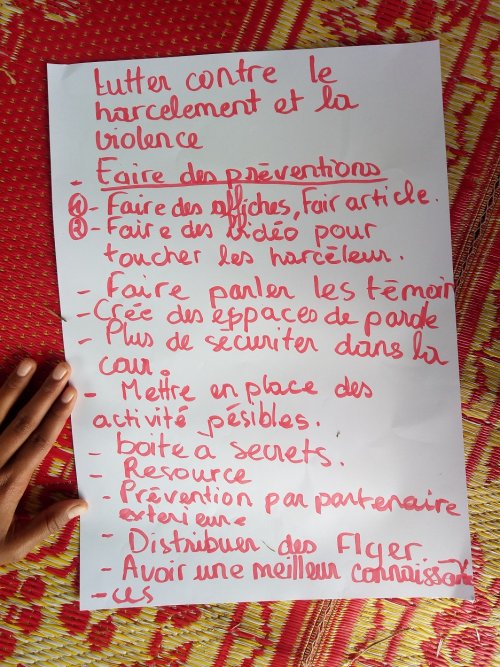 Lutter contre le
harcelement et la
violence
- Faire des préventions
① - Faire des affiches, Fair article.
② - Faire des vidéo pour
toucher les harcéleur.
- Faire parler les témoin
- Crée des espaces de parole
- Plus de sécuriter dans la
cour.
- Mettre en place des
activité pésibles.
- boite a secrets.
- Resource
- Prévention par partenaire
exterieure
- Distribuer des Flyer
- Avoir une meilleur connaissan
- ces